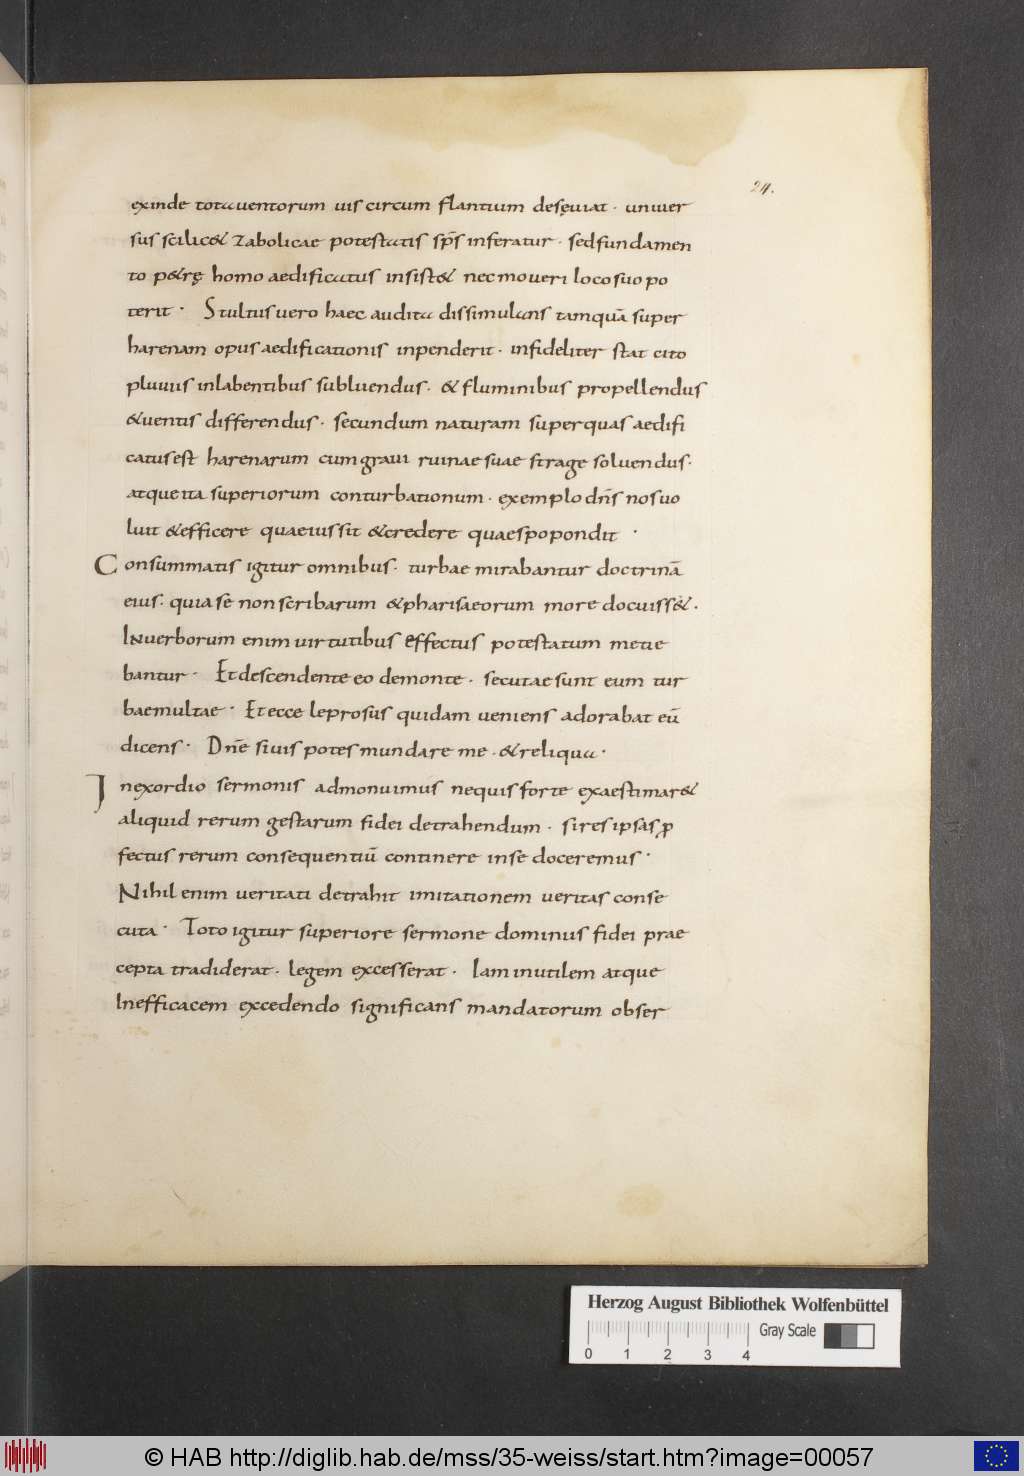 24.
exinde tota uentorum uis circum flantium desęuiat · uniuer
sus scilic& zabolicae potestatis sp̄s inferatur · sed fundamen
to p&rę homo aedificatus insist& nec moueri loco suo po
terit · Stultus uero haec audita dissimulans tamquā super
harenam opus aedificationis inpenderit · infideliter stat cito
pluuiis inlabentibus subluendus · & fluminibus propellendus
& uentis differendus · secundum naturam super quas aedifi
catus est harenarum cum graui ruinae suae strage soluendus ·
atque ita superiorum conturbationum · exemplo dn̄s nos uo
luit & efficere quae iussit & credere quae spopondit ·
Consummatis igitur omnibus · turbae mirabantur doctrinā
eius · quia se non scribarum & pharisaeorum more docuiss& ·
In uerborum enim uirtutibus effectus potestatum metie
bantur · Et descendente eo de monte · secutae sunt eum tur
bae multae · Et ecce leprosus quidam ueniens adorabat eū
dicens · Dn̄e si uis potes mundare me · & reliqua ·
In exordio sermonis admonuimus ne quis forte exaestimar&
aliquid rerum gestarum fidei detrahendum · si res ipsas ꝓ
fectus rerum consequentiū continere in se doceremus ·
Nihil enim ueritati detrahit imitationem ueritas conse
cuta · Toto igitur superiore sermone dominus fidei prae
cepta tradiderat · legem excesserat · Iam inutilem atque
Inefficacem excedendo significans mandatorum obser
Herzog August Bibliothek Wolfenbüttel
Gray Scale
0 1 2 3 4
© HAB http://diglib.hab.de/mss/35-weiss/start.htm?image=00057